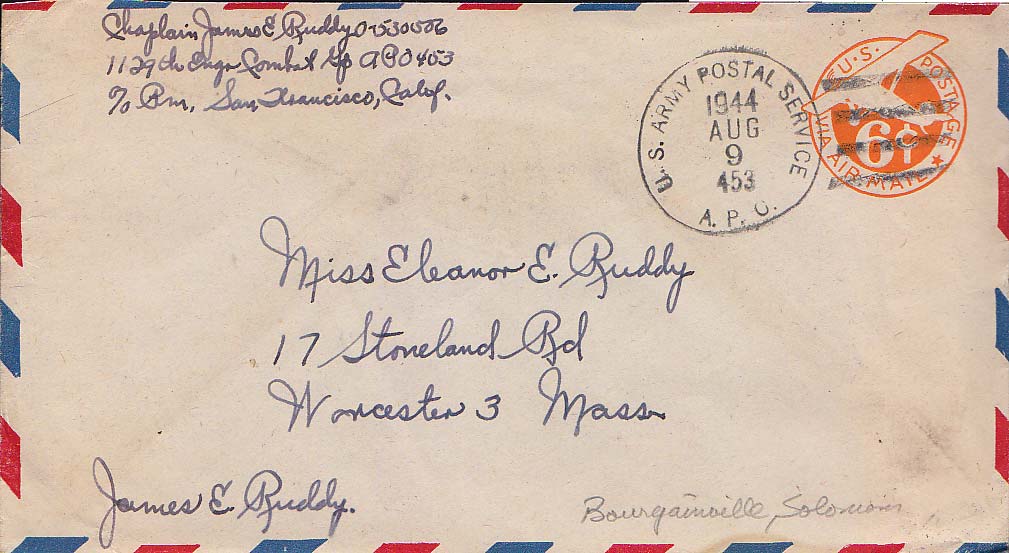 Chaplain James E Ruddy O-530506
1129th Engr Combat Gp APO 453
c/o P.m., San Francisco, Calif.
U.S. ARMY POSTAL SERVICE
1944
AUG
9
453
A.P.O.
U.S. POSTAGE
6¢
VIA AIR MAIL
Miss Eleanor E. Ruddy
17 Stoneland Rd
Worcester 3 Mass
James E. Ruddy.
Bourgainville, Solomons